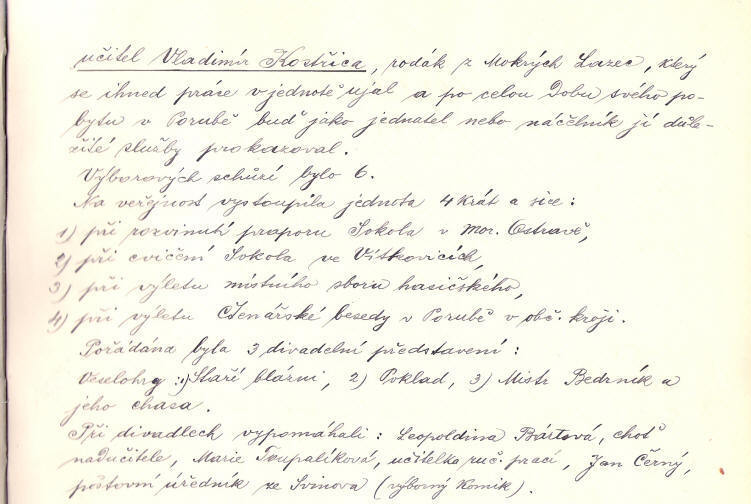 učitel Vladimír Kostřica, rodák z Mokrých Lazec, který
se ihned práce v jednotě ujal a po celou dobu svého po-
bytu v Porubě buď jako jednatel nebo náčelník jí důle-
žité služby prokazoval.
Výborových schůzí bylo 6.
Na veřejnost vystoupila jednota 4 krát a sice:
1) při rozvinutí praporu Sokola v mor. Ostravě,
2) při cvičení Sokola ve Vítkovicích,
3) při výletu místního sboru hasičského,
4) při výletu Čtenářské besedy v Porubě v obč. kroji.
Pořádána byla 3 divadelní představení:
Veselohry: 1) Staří blázni, 2) Poklad, 3) Mistr Bedrník a
jeho chasa.
Při divadlech vypomáhali: Leopoldina Bártová, choť
nadučitele, Marie Ťoupalíková, učitelka ruč. prací, Jan Černý,
poštovní úředník ze Svinova (výborný komik).